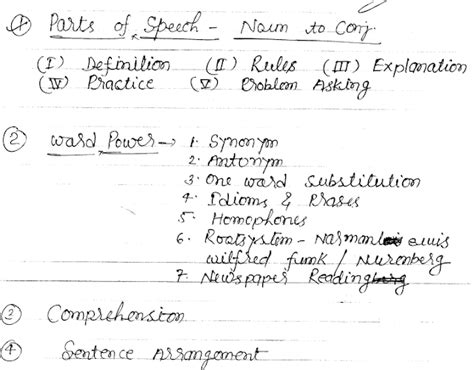 ① Parts of Speech - Noun to Conj
(I) Definition (II) Rules (III) Explanation
(IV) Practice (V) Problem Asking
② Word Power → 1. Synonym
2. Antonym
3. One word substitution
4. Idioms & Prases
5. Homophones
6. Rootsystem - Narman lewis
wilfred funk / Nurenberg
7. Newspaper Reading
③ Comprehension
④ Sentence Arrangement